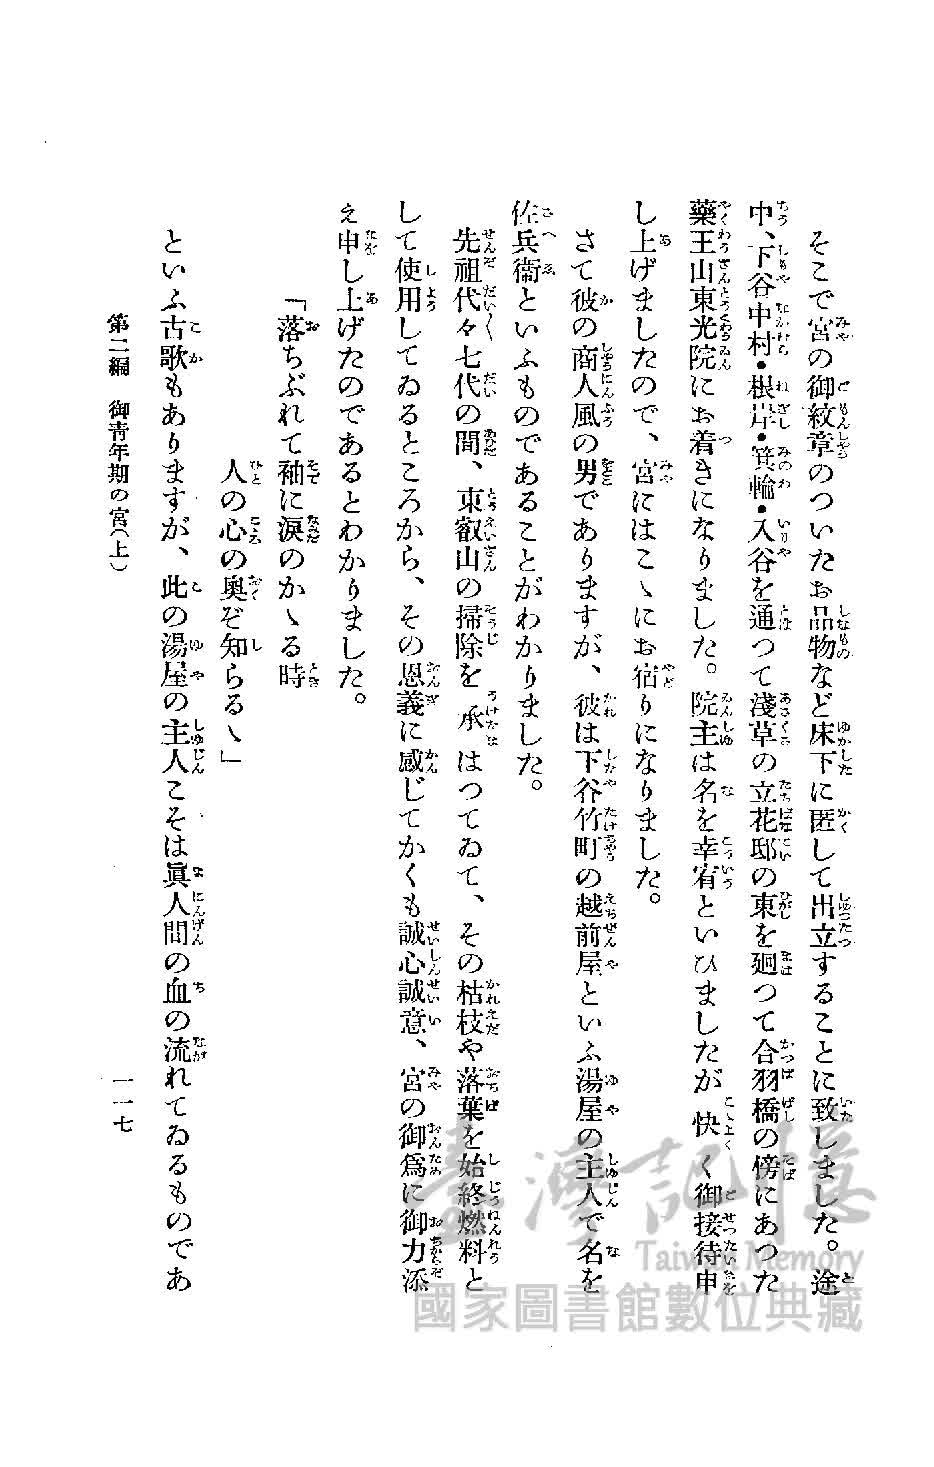 そこで宮の御紋章のついたお品物など床下に匿して出立することに致しました。途
中、下谷中村・根岸・箕輪・入谷を通つて淺草の立花邸の東を廻つて合羽橋の傍にあつた
藥王山東光院にお着きになりました。院主は名を幸宥といひましたが快く御接待申
し上げましたので、宮にはこゝにお宿りになりました。
さて彼の商人風の男でありますが、彼は下谷竹町の越前屋といふ湯屋の主人で名を
佐兵衞といふものであることがわかりました。
先祖代々七代の間、東叡山の掃除を承はつてゐて、その枯枝や落葉を始終燃料と
して使用してゐるところから、その恩義に感じてかくも誠心誠意、宮の御爲に御力添
え申し上げたのであるとわかりました。
「落ちぶれて袖に涙のかゝる時
人の心の奥ぞ知らるゝ」
といふ古歌もありますが、此の湯屋の主人こそは眞人間の血の流れてゐるものであ
第二編 御靑年期の宮(上)
一一七
臺灣記憶
Taiwan Memory
國家圖書館數位典藏